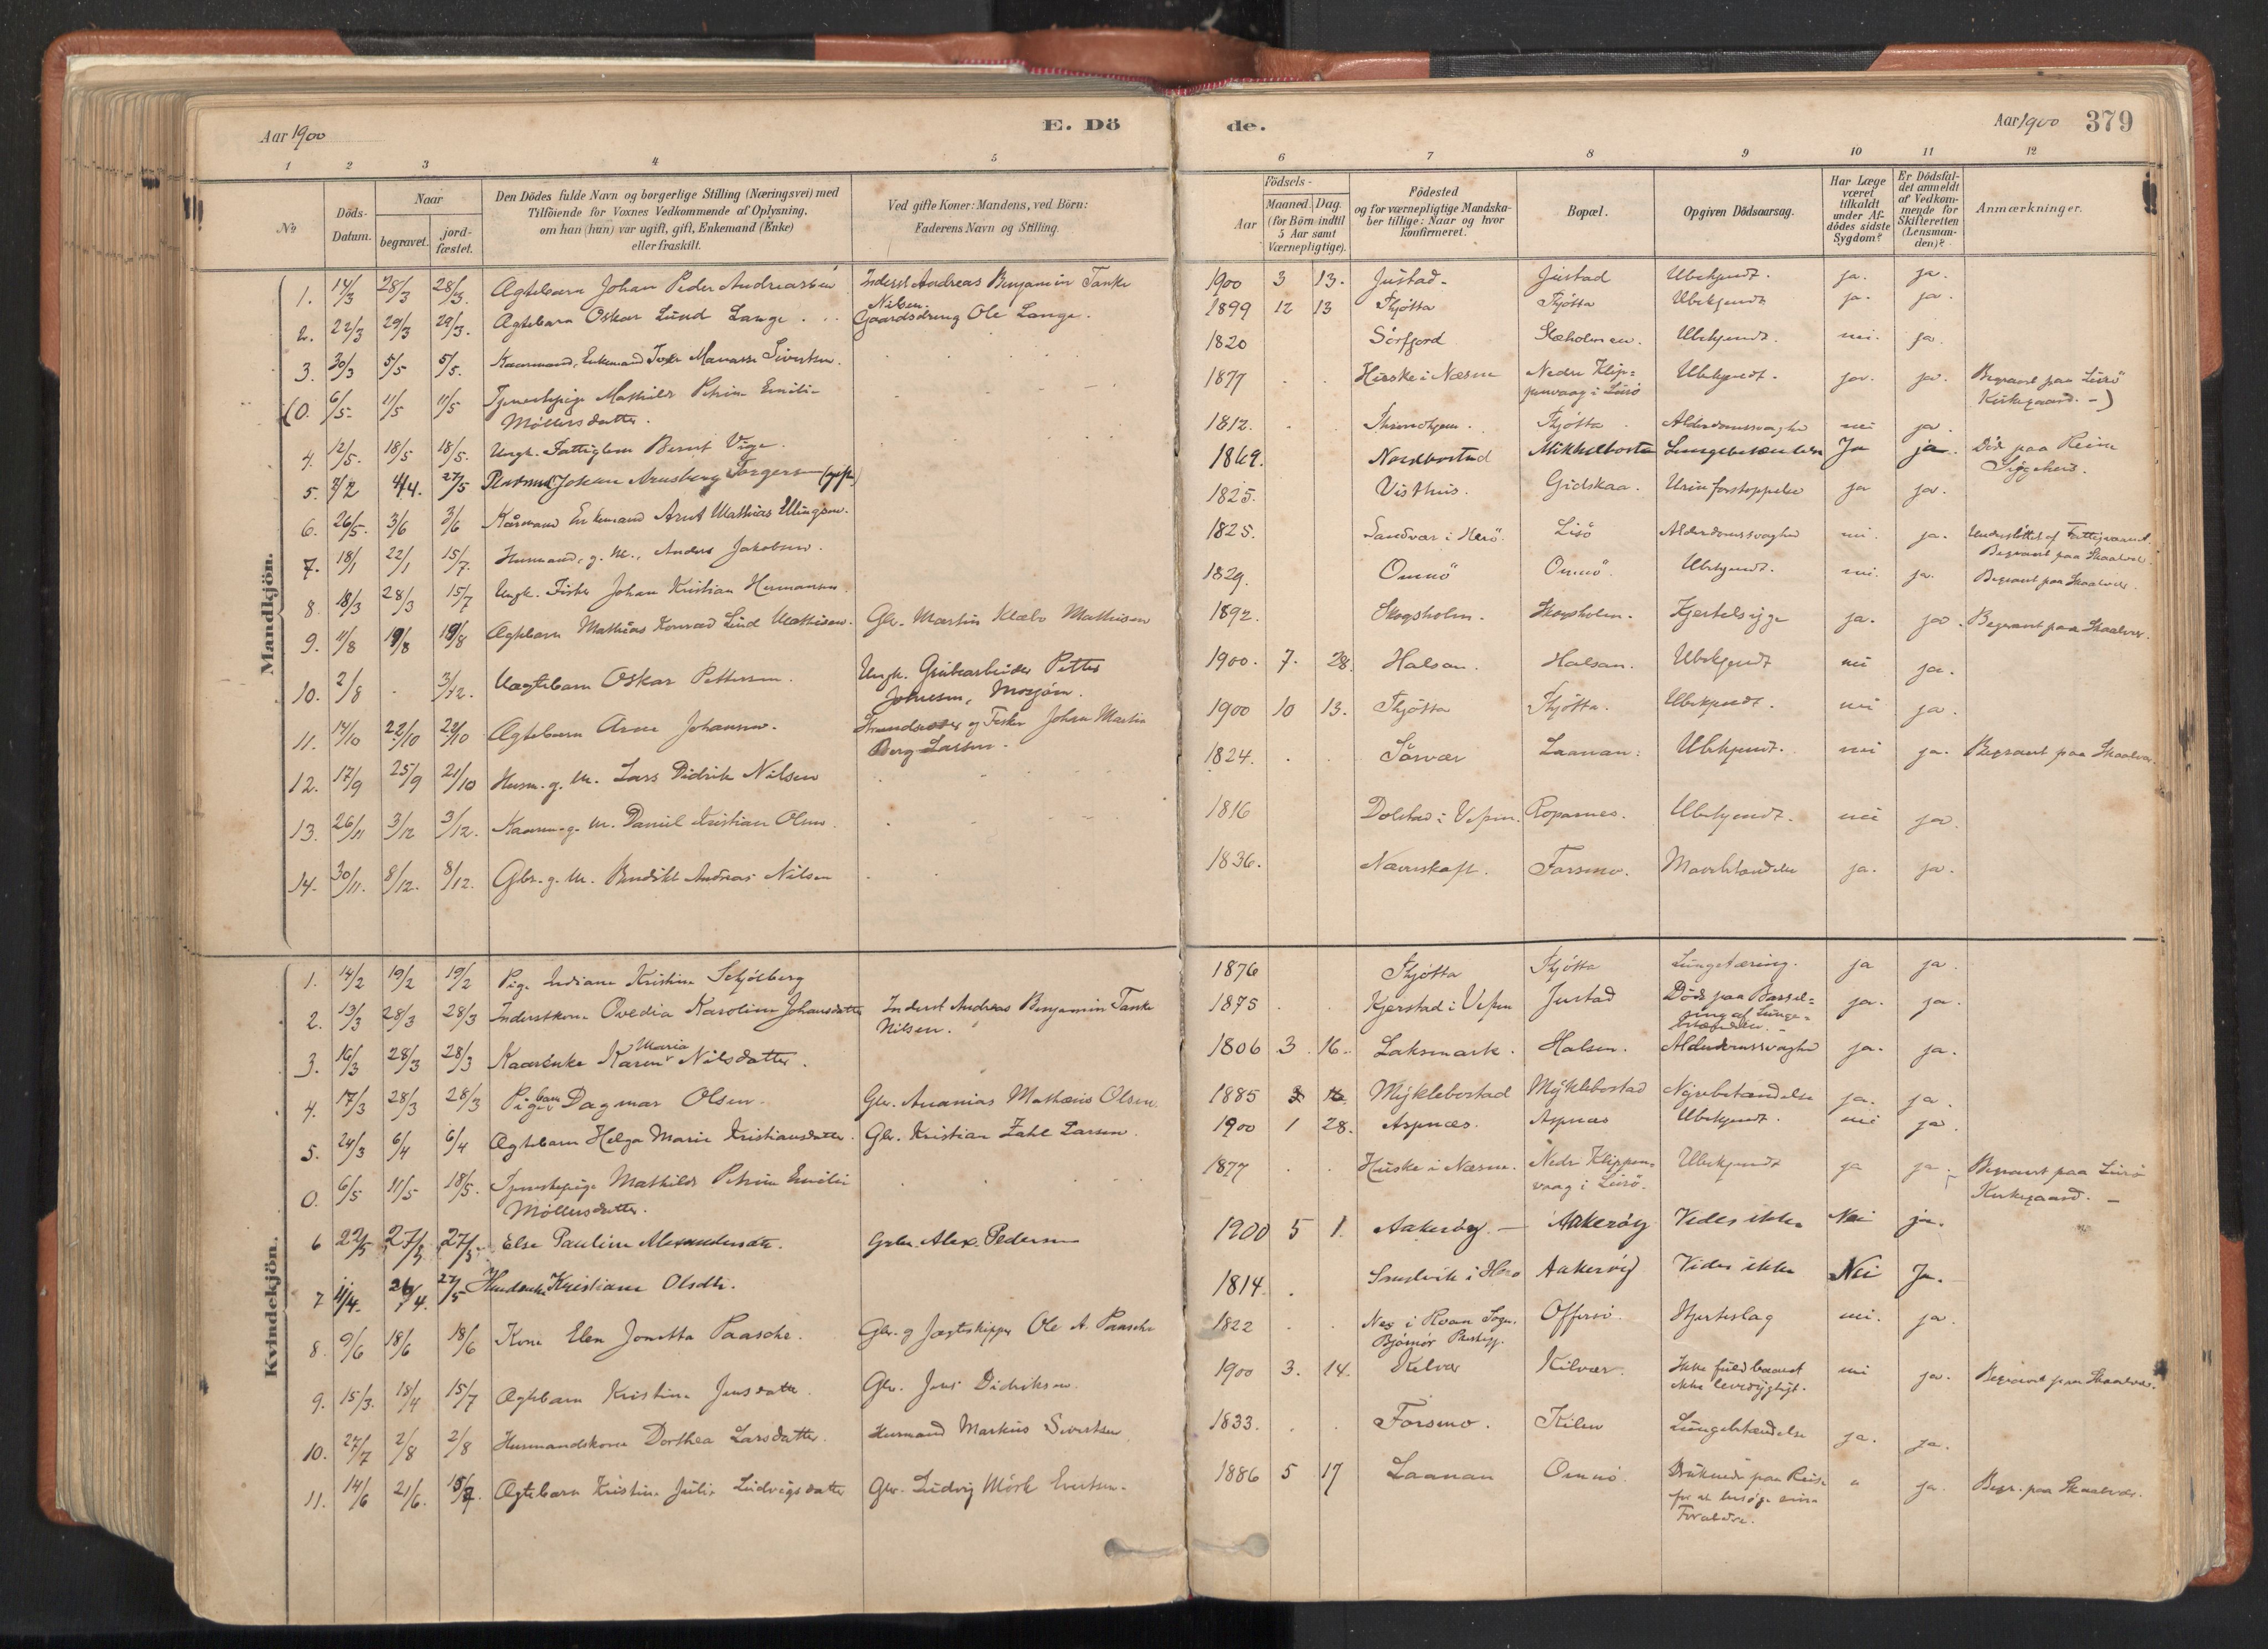 Aar 1900
E. Dö
1 2 3 4 5
№
Döds-
Datum.
Naar
begravet.
jord-
fæstet.
Den Dödes fulde Navn og borgerlige Stilling (Næringsvei) med
Tilföiende for Voxnes Vedkommende af Oplysning,
om han (hun) var ugift, gift, Enkemand (Enke)
eller fraskilt.
Ved gifte Koner: Mandens, ved Börn:
Faderens Navn og Stilling.
Mandkjön.
1. 14/3 28/3 28/3. Ægtebarn Johan Peder Andreassen Inderst Andreas Benjamin Tanke
Nilsen.
2. 22/3 29/3 29/3. Ægtebarn Oskar Lund Lange. Gaardsdreng Ole Lange.
3. 30/3 5/5 5/5. Kaarmand, Enkemand Manasse Sivertsen.
(0. 6/5. 11/5 11/5 Tjenestepige Mathilde Petrine Emilie
Möllersdatter.
4. 12/5. 18/5 18/5. Ungk. Fattiglem Bernt Vige.
5. 2/2 4/4. 27/5 Johan Arnsberg Torgersen (gift)
6. 26/5. 3/6 3/6 Kårmand Enkemand Arnt Mathias Ellingsen.
7. 18/1 22/1 15/7. Husmand, g. M., Anders Jakobsen.
8. 18/3 28/3 15/7 Ungk. Fisker Johan Kristian Hermansen.
9. 11/8 19/8 19/8 Ægtebarn Mathias Konrad Lind Mathisen. Gbr. Martin Klæbo Mathisen
10. 2/8 . 3/12. Uægtebarn Oskar Pettersen. Ungk. Grubearbeider Petter
Johnesen, Mosjöen.
11. 14/10 22/10 22/10 Ægtebarn Arne Johansen. Strandsidder og Fisker Johan Martin
Berg Larsen.
12. 17/9 25/9 21/10 Husm. g. M. Lars Didrik Nilsen
13. 26/11 3/12 3/12. Kaarm. g. M. Daniel Kristian Olsen
14. 30/11. 8/12. 8/12. Gbr. g. M. Bendikt Andreas Nilsen
Kvindekjön.
1. 14/2 19/2 19/2 Pige Indiane Kristine Schjölberg
2. 13/3 28/3 28/3 Inderstkone Ovedia Karoline Johansdatter Inderst Andreas Benjamin Tanke
Nilsen.
3. 16/3 28/3 28/3 Kaarenke Karen Maria Nilsdatter.
4. 17/3 28/3 28/3 Pigebarn Dagmar Olsen. Gbr. Ananias Mathæus Olsen.
5. 24/3 6/4 6/4 Ægtebarn Helga Marie Kristiansdatter. Gbr. Kristian Zahl Larsen.
0. 6/5 11/5 18/5. Tjenestepige Mathilde Petrine Emilie
Möllersdatter.
6 22/5 27/5 27/5. Else Pauline Alexandersdtr. Gbr. Alex. Pedersen
7 11/4. 26/4. 27/5 Kristiane Olsdtr.
8. 9/6 18/6 18/6 Kone Elen Jonetta Paasche. Gbr. og Jægtskipper Ole A. Paasche
9. 15/3. 18/4 15/7 Ægtebarn Kristine Jensdatter. Gbr. Jens Didriksen.
10. 27/7 2/8 2/8 Husmandskone Dorthea Larsdatter. Husmand Markus Sivertsen
11. 14/6 21/6. 15/7. Ægtebarn Kristine Julie Ludvigsdatter Gbr. Ludvig Mörk Evertsen.
de.
Aar 1900 379
6 7 8 9 10 11 12
Födsels-
Aar
Maaned. Dag.
(for Börn indtil
5 Aar samt
Værnepligtige).
Födested
og for værnepligtige Mandska-
ber tillige: Naar og hvor
konfirmeret.
Bopæl.
Opgiven Dödsaarsag.
Har Læge
været
tilkaldt
under Af-
dödes sidste
Sygdom?
Er Dödsfal-
det anmeldt
af Vedkom-
mende for
Skifteretten
(Lensman-
den)?
Anmærkninger.
1900 3 13. Justad. Justad Ubekjendt. ja. ja.
1899 12 13 Thjötta Thjötta Ubekjendt ja. ja.
1820 Sörfjord Ubekjendt. nei. ja.
1877 . . Huske i Næsne Nedre Klip=
penvaag i Lurö Ubekjendt. ja. ja. Begravet paa Lurö
Kirkegaard. -)
1812. . . Throndhjem. Thjötta. Alderdomssvaghed nei ja.
1869. Nordbostad Mikkelbostad Lungebetændelse Ja ja. Död paa Reine
1825. Visthus. Gidskaa. Urinforstoppelse ja ja.
1825. Sandvær i Herö. Lisö Alderdomssvaghed nei. ja. Understöttet af Fattigvæsenet.
Begravet paa Skaalvær.
1829. Omnö Omnö. Ubekjendt. nei. ja. Begravet paa Skaalvær.
1892. Skogsholm. Skogsholm. Kjertelsyge ja. ja. Begravet paa Skaalvær.
1900. 7. 28. Halsan. Halsan. Ubekjendt nei ja.
1900 10 13. Thjötta Thjötta. Ubekjendt. nei ja.
1824. . . Sörvær Laanan. Ubekjendt. nei ja. Begravet paa Skaalvær.
1816 Dolstad i Vefsen. Roparnes. Ubekjendt. nei ja.
1836. Nævnskaft. Forsmo. Mavebetændelse ja. ja.
1876 . . Thjötta Thjötta Lungetæring. ja ja.
1875 . Kjerstad i Vefsen Justad Död paa Barsel=
seng af Lunge=
betændelse. - ja. ja.
1806 3. 16. Laksmark. Halsen. Alderdomssvaghed ja. ja.
1885 Mýklebostad Mýklebostad Nyrebetændelse ja. ja.
1900 1 28. Aspnæs. Aspnæs Ubekjendt. nei ja.
1877 . . Huske i Næsne. Nedr Klippen=
vaag i Lurö. Ubekjendt ja ja. Begravet paa Lurö
Kirkegaard. -
1900 5 1. Aakeröy. - Aakeröy Vides ikke Nei ja.
1814. . Sandvik i Herö Aakeröy Vides ikke Nei Ja.
1822 . . Næs i Roan Sogn.
Björnör Prestegj. Offersö Hjerteslag nei. ja.
1900 3. 14. Kilvær Kilvær. Ikke fuldbaaret
ikke levedygtigt. nei ja. Begravet paa Skaalvær.
1833. . . Forsmo. Kilen Lungebetændelse ja. ja.
1886 5 17 Laanan Omnö. Druknede paa Reise
for at besöge sine
Forældre. " ja. Begr. paa Skaalvær.